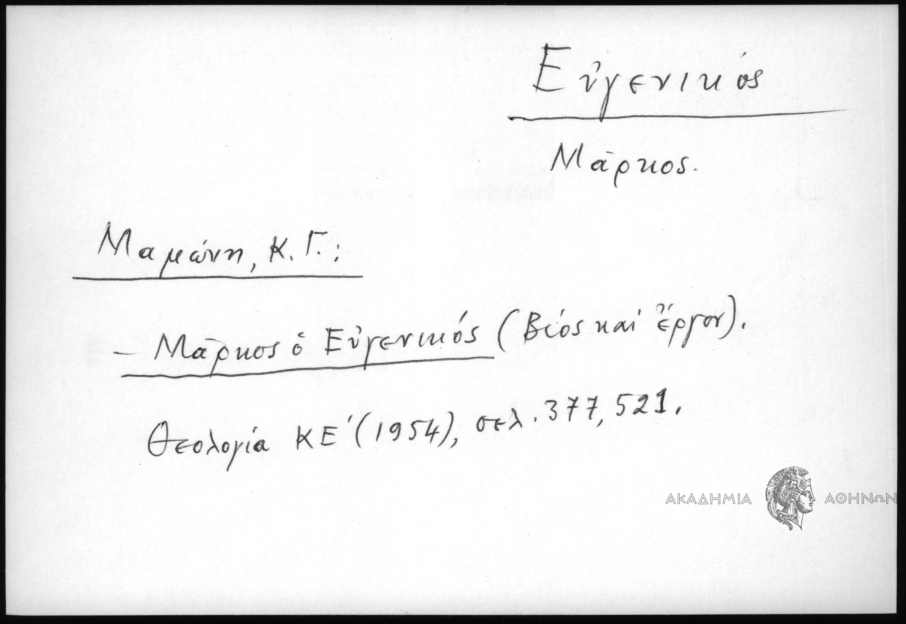 Εὐγενικός
Μᾶρκος.
Μαμώνη, Κ. Γ.:
– Μᾶρκος ὁ Εὐγενικός (Βίος καὶ ἔργον).
Θεολογία ΚΕ' (1954), σελ. 377, 521.
ΑΚΑΔΗΜΙΑ ΑΘΗΝΩΝ